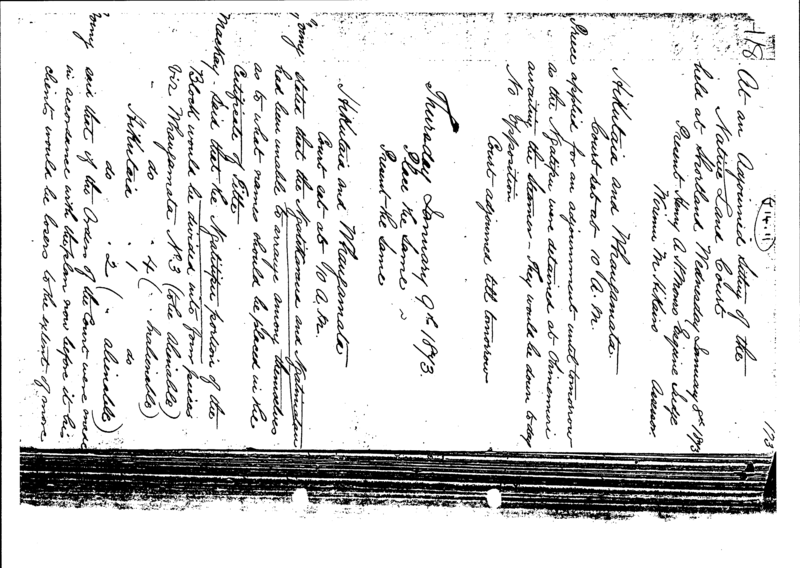 118
173
At an Adjourned Sitting of the
Native Land Court
held at Shortland, Wednesday January 8th 1873
Present Henry A. Monro Esquire Judge
Assessor
Hikutaia and Whangamata
Court sat at 10 A.M.
applied for an adjournment until tomorrow
as the Ngatipu were detained at Ohinemuri
awaiting the steamer - They would be down today
No opposition
Court adjourned till tomorrow
Thursday January 9th 1873.
Place the same
Present the same
Hikutaia and Whangamata
Court sat at 10 A.M.
stated that the and
had been unable to arrange among themselves
as to what names should be placed in the
Certificate of Title
Mackay - Said that the portion of the
Block would be divided into four pieces
viz Whangamata No 3 (to be alienable)
" do " 4 ( " inalienable)
Hikutaia " 1 do
do " 2 ( " alienable)
said that if the Orders of the Court were made
in accordance with the plan now before it his
clients would be losers to the extent of more